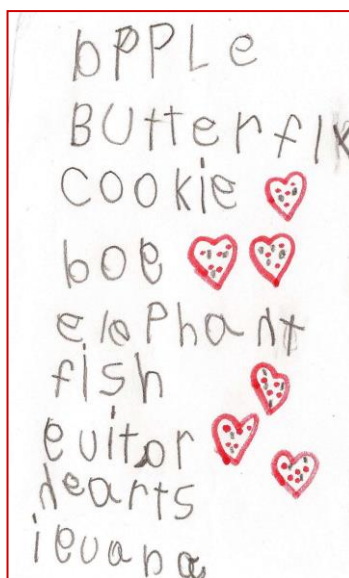 bPPLe
Butterfly
cookie
boe
elephant
fish
euitor
hearts
ieuana